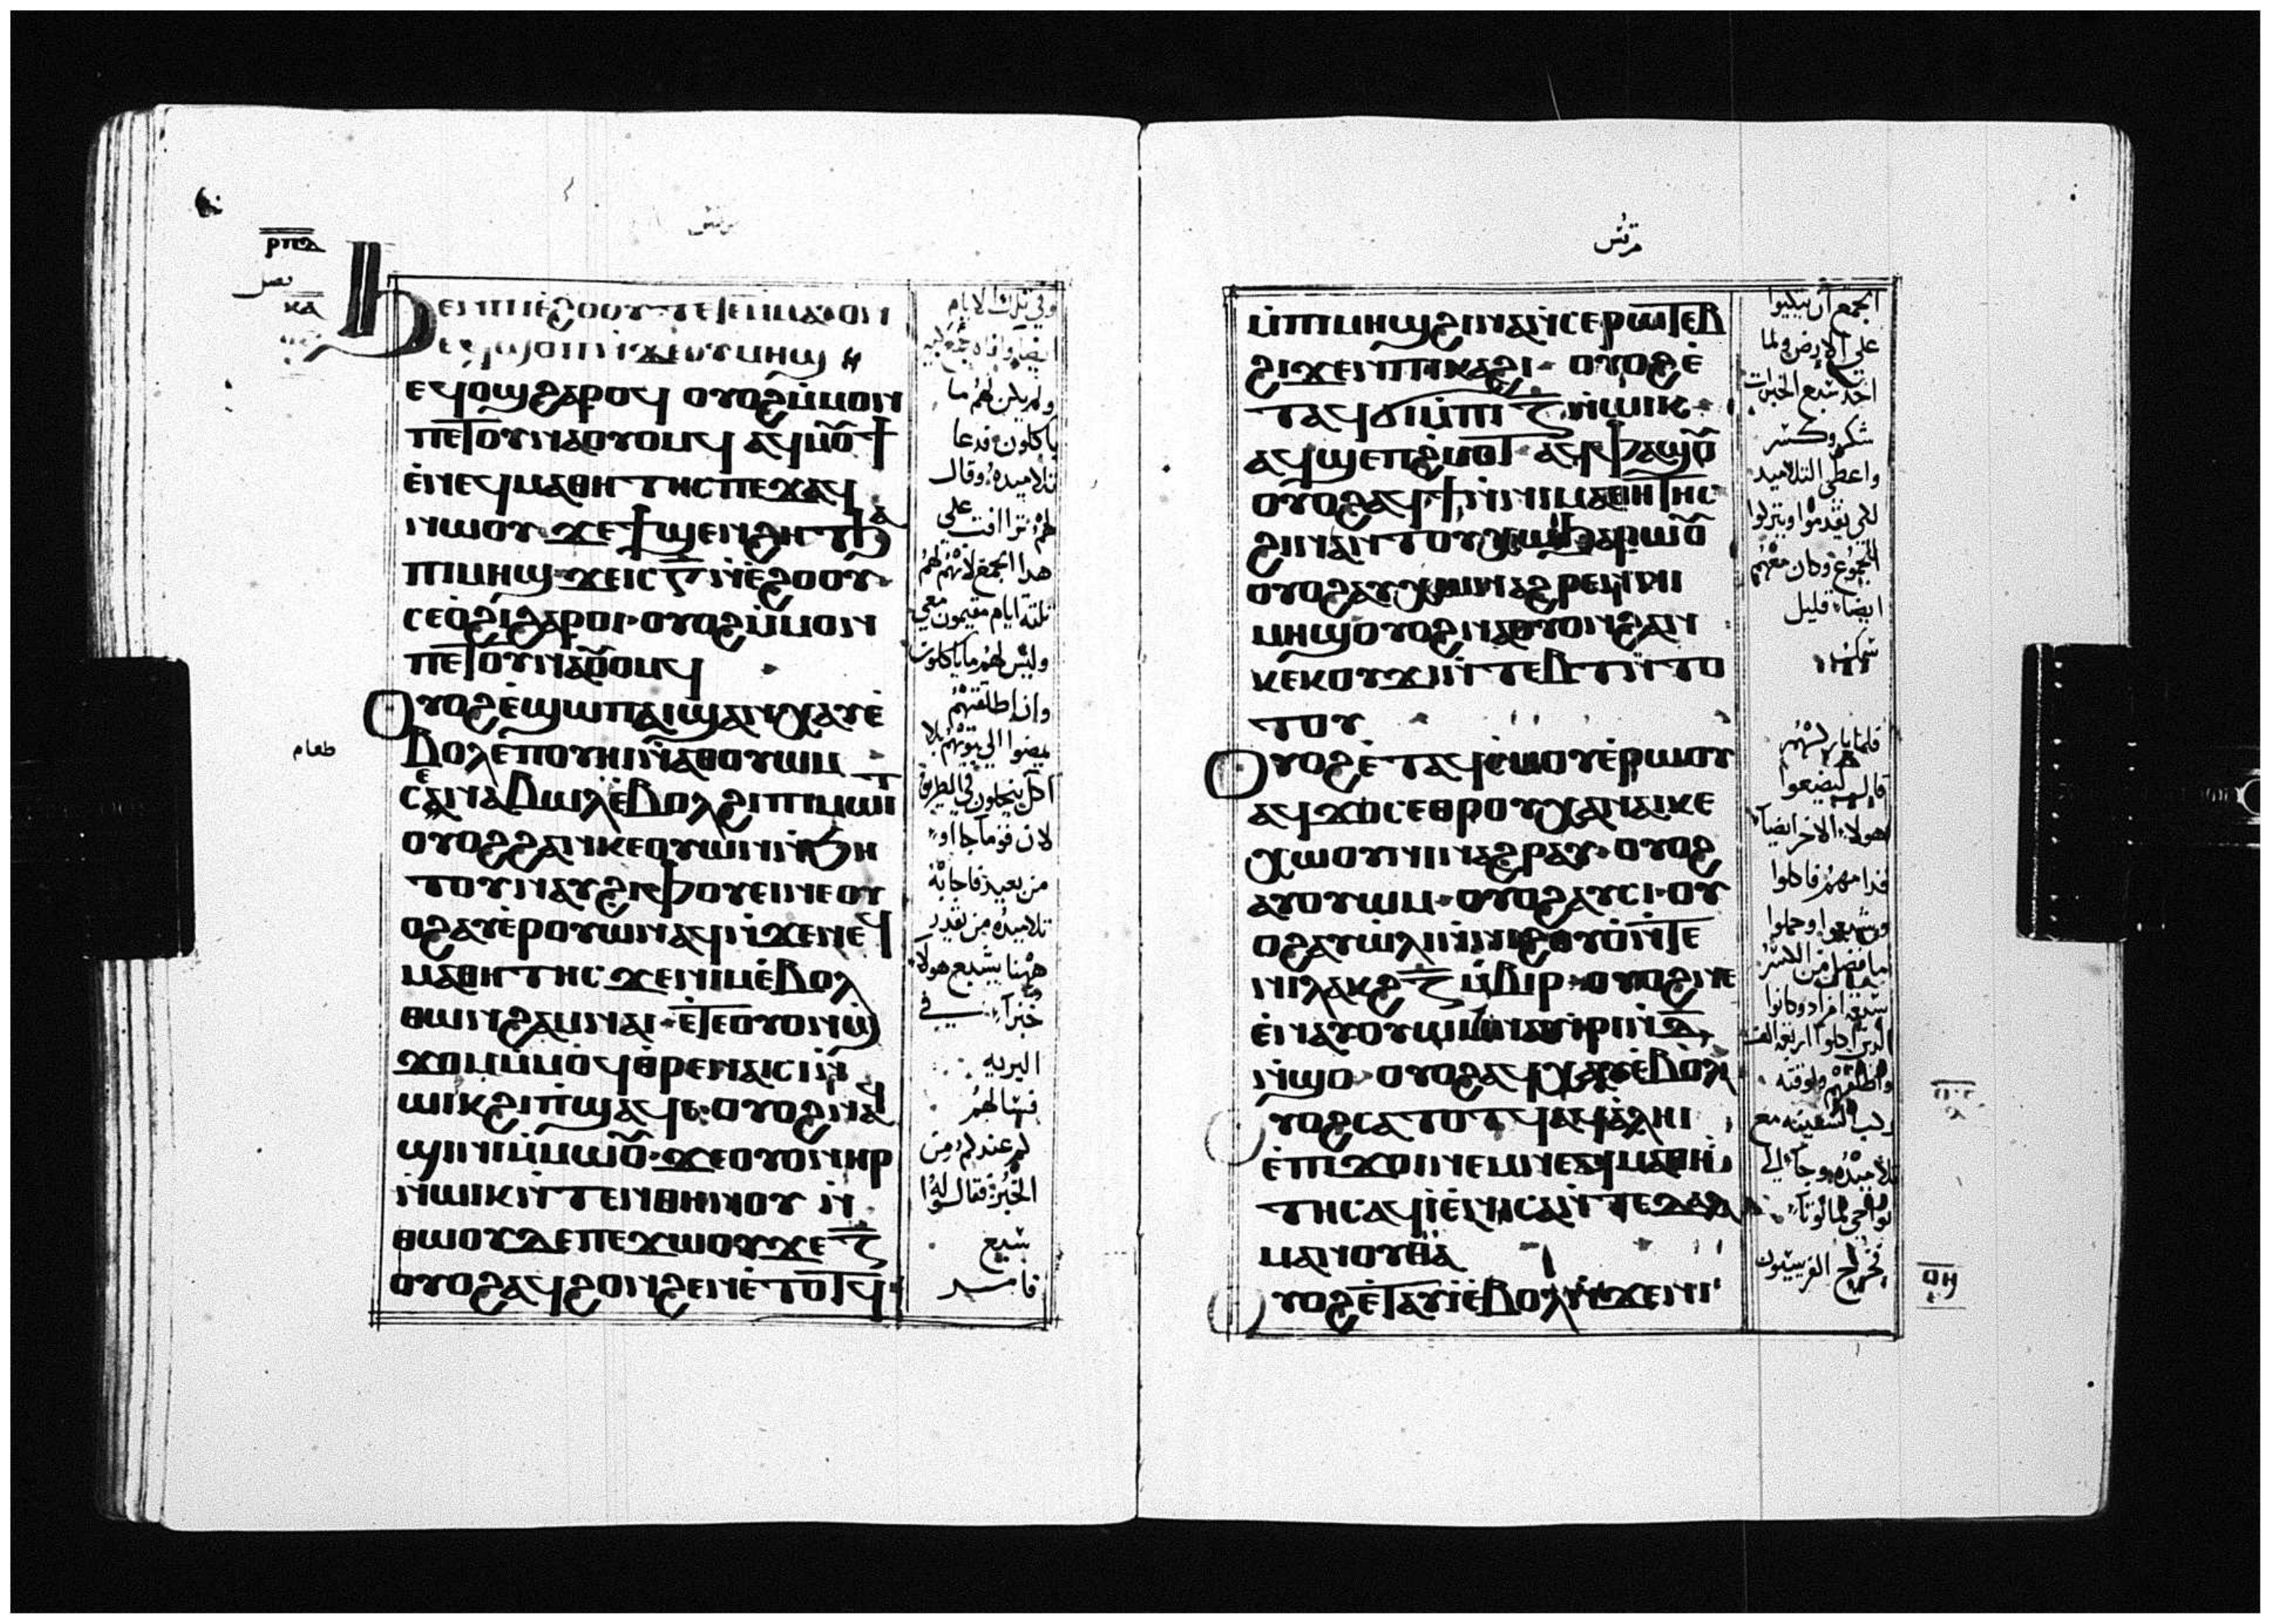 مرقس
ⲣⲡⲇ
فصل
ⲕⲁ
Ϧⲉⲛⲛⲓⲉϩⲟⲟⲩ ⲇⲉ ⲉⲧⲉⲙⲙⲁⲩ ⲟⲛ
ⲉϥϣⲟⲡ ⲛϫⲉⲟⲩⲙⲏϣ
ⲉϥⲟϣ ϩⲁⲣⲟϥ ⲟⲩⲟϩ ⲙⲙⲟⲛ
ⲡⲉⲧⲟⲩⲛⲁⲟⲩⲟⲙϥ ⲁϥⲙⲟ̅ϯ
ⲉⲛⲉϥⲙⲁⲑⲏⲧⲏⲥ ⲡⲉϫⲁϥ
ⲛⲱⲟⲩ ϫⲉ ϯϣⲉⲛϩⲏⲧ ϧⲁ
ⲡⲓⲙⲏϣ ϫⲉ ⲓⲥ ⲅ̅ ⲛⲉϩⲟⲟⲩ
ⲥⲉⲟϩⲓ ϩⲁⲣⲟⲓ ⲟⲩⲟϩ ⲙⲙⲟⲛ
ⲡⲉⲧⲟⲩⲛⲁⲟ̅ⲟⲙϥ
Ⲟⲩⲟϩ ⲉϣⲱⲡ ⲁⲓϣⲁⲛⲭⲁⲩ ⲉ
ⲃⲟⲗ ⲉⲡⲟⲩⲏⲓ ⲛⲁⲑⲟⲩⲱⲙ
ⲥⲉⲛⲁⲃⲱⲗ ⲉⲃⲟⲗ ϩⲓ ⲡⲓⲙⲱⲓⲧ
ⲟⲩⲟϩ ϩⲁⲛⲕⲉⲟⲩⲱⲛ ⲛϧⲏ
ⲧⲟⲩ ⲛⲁⲩϩⲓ ⲫⲟⲩⲉⲓ ⲛⲉ ⲟⲩ
ⲟϩ ⲁⲩⲉⲣⲟⲩⲱ ⲛⲁϥ ⲛϫⲉⲛⲉϥ
ⲙⲁⲑⲏⲧⲏⲥ ϫⲉ ⲛⲓⲙ ⲉⲃⲟⲗ
ⲑⲱⲛ ϩⲁⲙⲛⲁⲓ ⲉⲧⲉ ⲟⲩⲟⲛϣ
ϫⲟⲙ ⲙⲙⲟϥ ⲑⲣⲉ ⲛⲁⲓ ⲥⲓ ⲛ
ⲱⲓⲕ ϩⲓ ⲡϣⲁϥⲉ ⲟⲩⲟϩ ⲛⲁϥ
ϣⲓⲛⲓ ⲙⲙⲱⲟ̅ ϫⲉ ⲟⲩⲟⲛ ⲏⲣ
ⲛⲱⲓⲕ ⲛⲧⲉⲛⲑⲏⲛⲟⲩ ⲛ
ⲑⲱⲟⲩ ⲇⲉ ⲡⲉϫⲱⲟⲩ ϫⲉ ⲍ̅
ⲟⲩⲟϩ ⲁϥϩⲟⲛϩⲉⲛ ⲉⲧⲟⲧϥ
طعام
وفي تلك الايام
ولم يكن لهم ما
ياكلون فدعا
تلاميذه وقال
لهم
هذا الجمع لانهم لهم
ثلثة ايام مقيمون معي
وليس لهم ما ياكلون
وان اطلقتهم
يمضوا الي بيوتهم بلا
اكل ينحلون في الطريق
لان قوما جاا
من بعيد فاجابه
تلاميذه من يقدر
ههنا يشبع هولا
خبزا في
البريه
فسالهم
كم عندكم من
الخبز فقالوا
سبع
فامر
مرقس
ⲙⲡⲓⲙⲏϣ ϩⲓⲛⲁ ⲛⲥⲉⲣⲱⲧⲉⲃ
ϩⲓϫⲉⲛ ⲡⲓⲕⲁϩⲓ ⲟⲩⲟϩ ⲉ
ⲧⲁϥϭⲓ ⲙⲡⲓ ⲍ̅ ⲛⲱⲓⲕ
ⲁϥϣⲉⲡϩⲙⲟⲧ ⲁϥⲫⲁϣⲟ̅
ⲟⲩⲟϩ ⲁϥϯ ⲛⲛⲓⲙⲁⲑⲏⲧⲏⲥ
ϩⲓⲛⲁ ⲛⲧⲟⲩⲭⲱ ϧⲁⲣⲱⲟ̅
ⲟⲩⲟϩ ⲁⲩⲭⲱ ⲛⲁϩⲣⲉⲛ ⲡⲓ
ⲙⲏϣ ⲟⲩⲟϩ ⲛⲁⲩⲟⲛ ϩⲁⲛ
ⲕⲉⲕⲟⲩϫⲓ ⲛⲧⲉⲃⲧ ⲛⲧⲟ
ⲧⲟⲩ
Ⲟⲩⲟϩ ⲉⲧⲁϥⲥⲙⲟⲩ ⲉⲣⲱⲟⲩ
ⲁϥϫⲟⲥ ⲉⲑⲣⲟⲩⲭⲁ ⲛⲁⲓⲕⲉ
ⲭⲱⲟⲩⲛⲓ ⲛⲁϩⲣⲁⲩ ⲟⲩⲟϩ
ⲁⲩⲟⲩⲱⲙ ⲟⲩⲟϩ ⲁⲩⲥⲓ ⲟⲩ
ⲟϩ ⲁⲩⲱⲗⲓ ⲛⲛⲓϩⲟⲩⲟ ⲛⲧⲉ
ⲛⲓⲗⲁⲕϩ ⲍ̅ ⲙⲃⲓⲣ ⲟⲩⲟϩ ⲛⲉ
ⲉⲛⲁⲩⲟⲩⲱⲙ ⲛⲁⲩⲉⲣ ⲛⲁ ⲇ̅
ⲛϣⲟ ⲟⲩⲟϩ ⲁϥⲭⲁⲩ ⲉⲃⲟⲗ
Ⲟⲩⲟϩ ⲥⲁⲧⲟⲧϥ ⲁϥⲁⲗⲏⲓ
ⲉⲡⲓϫⲟⲓ ⲛⲉⲙ ⲛⲉϥⲙⲁⲑⲏ
ⲧⲏⲥ ⲁϥⲓ ⲉⲛⲓⲥⲁ ⲛⲧⲉ ⲇⲁⲗ
ⲙⲁⲛⲟⲩⲑⲁ
Ⲟⲩⲟϩ ⲉⲧⲁⲩⲓ ⲉⲃⲟⲗ ⲛϫⲉⲛⲓ
الجمع ان يتكيوا
علي الارض ولما
اخذ سبع الخبزات
شكر وكسر
واعطي التلاميذ
لكي يقدموا
الجموع وكان معهم
ايضا قليل
سمك
قال ليضعوا
هولاء الاخر ايضا
قدامهم فاكلوا
وشبعوا وحملوا
ما فضل من الكسر
وكانوا
الذين اكلوا اربعة الف
ركب السفينه مع
تلاميذه وجا الي
نواحي
فخرج الفريسيون
ⲡⲏ